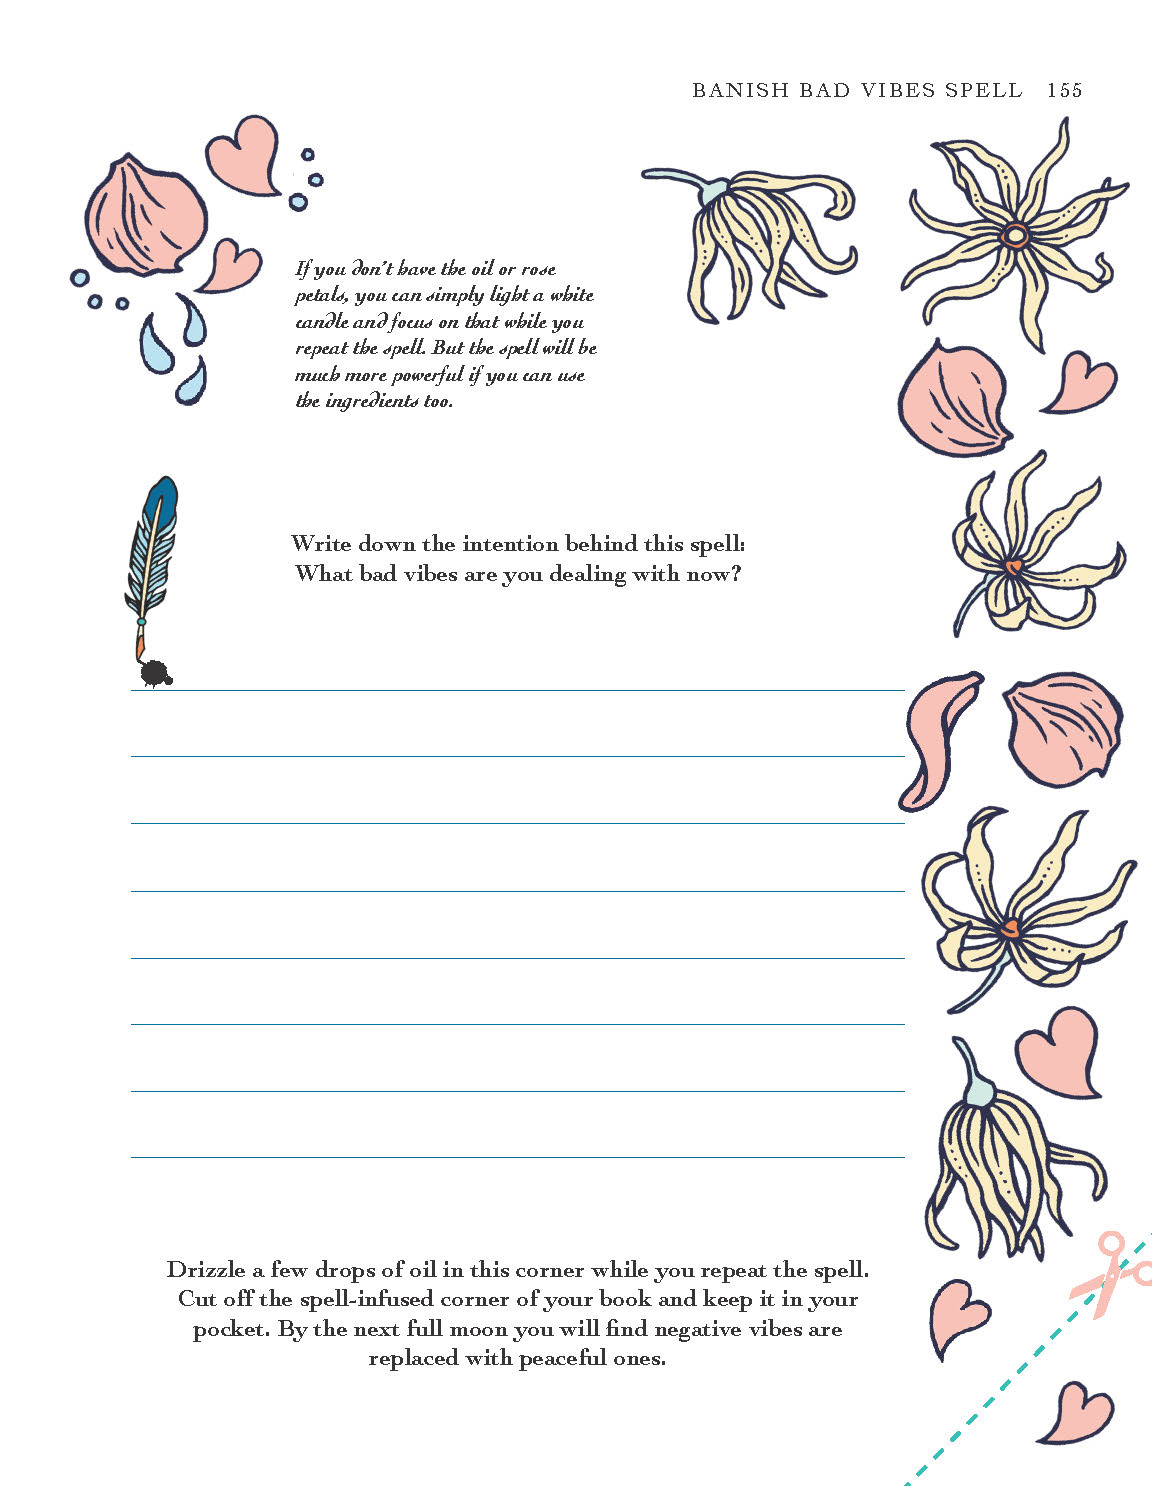 BANISH BAD VIBES SPELL 155
If you don't have the oil or rose
petals, you can simply light a white
candle and focus on that while you
repeat the spell. But the spell will be
much more powerful if you can use
the ingredients too.
Write down the intention behind this spell:
What bad vibes are you dealing with now?
Drizzle a few drops of oil in this corner while you repeat the spell.
Cut off the spell-infused corner of your book and keep it in your
pocket. By the next full moon you will find negative vibes are
replaced with peaceful ones.